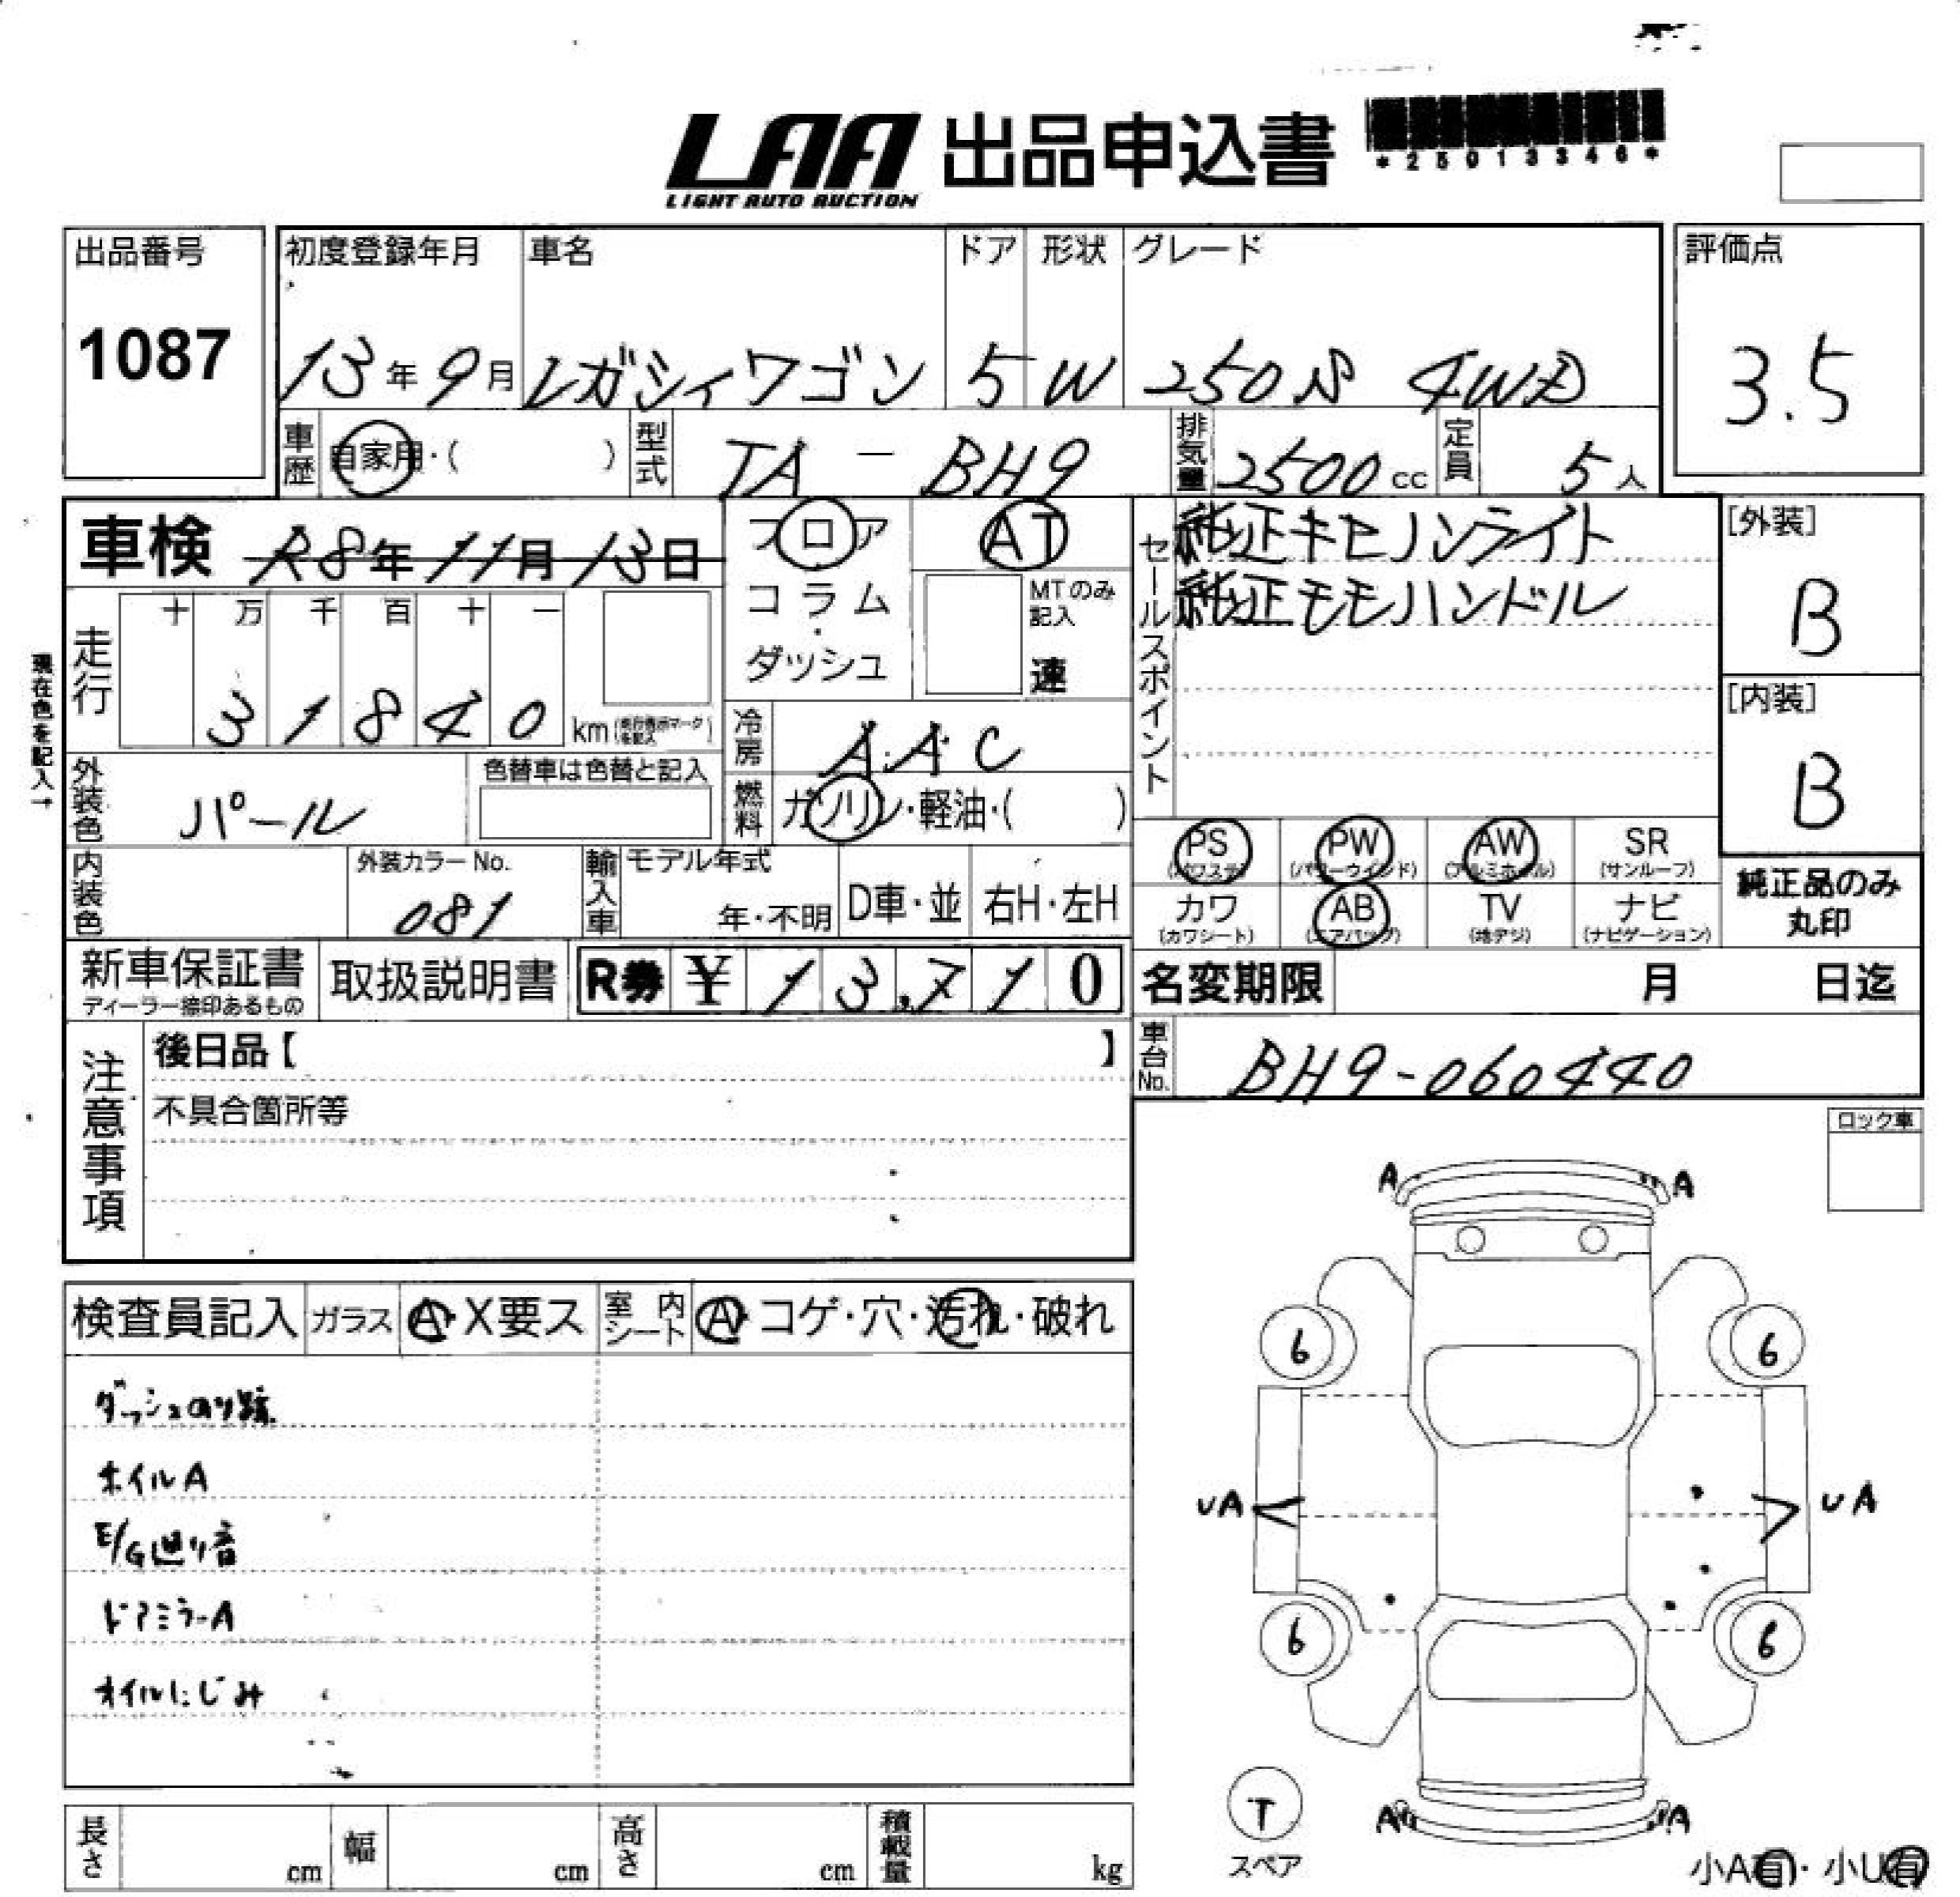 LAA 出品申込書
LIGHT AUTO AUCTION
*25013346*
出品番号
1087
初度登録年月 車名 ドア 形状 グレード
13年9月 レガシィワゴン 5 W 250S 4WD
評価点
3.5
車歴 自家用・( ) 型式 TA - BH9 排気量 2500cc 定員 5人
車検 R8年11月13日
フロア
コラム
・
ダッシュ
AT
MTのみ
記入
速
セールスポイント
純正キセノンライト
純正モモハンドル
[外装]
B
[内装]
B
現在色を記入→
走行
十 万 千 百 十 一
3 1 8 4 0 km (走行表示マークを記入)
冷房 AAC
外装色 パール
色替車は色替と記入
燃料 ガソリン・軽油・( )
内装色
外装カラーNo.
081
輸入車 モデル年式
年・不明 D車・並 右H・左H
PS PW AW SR
(パワステ) (パワーウインド) (アルミホイル) (サンルーフ)
カワ AB TV ナビ
(カワシート) (エアバッグ) (地デジ) (ナビゲーション)
純正品のみ
丸印
新車保証書
ディーラー捺印あるもの
取扱説明書
R券 ¥ 1 3,7 1 0
名変期限 月 日迄
車台No. BH9-060440
注意事項
後日品【 】
不具合箇所等
ロック車
検査員記入 ガラス A・X要ス 室内シート A・コゲ・穴・汚れ・破れ
ダッシュのり跡
ホイルA
E/G廻り音
ドアミラーA
オイルにじみ
A A
6 6
UA UA
6 6
T
スペア
A A
小A有・小U有
長さ cm 幅 cm 高さ cm 積載量 kg